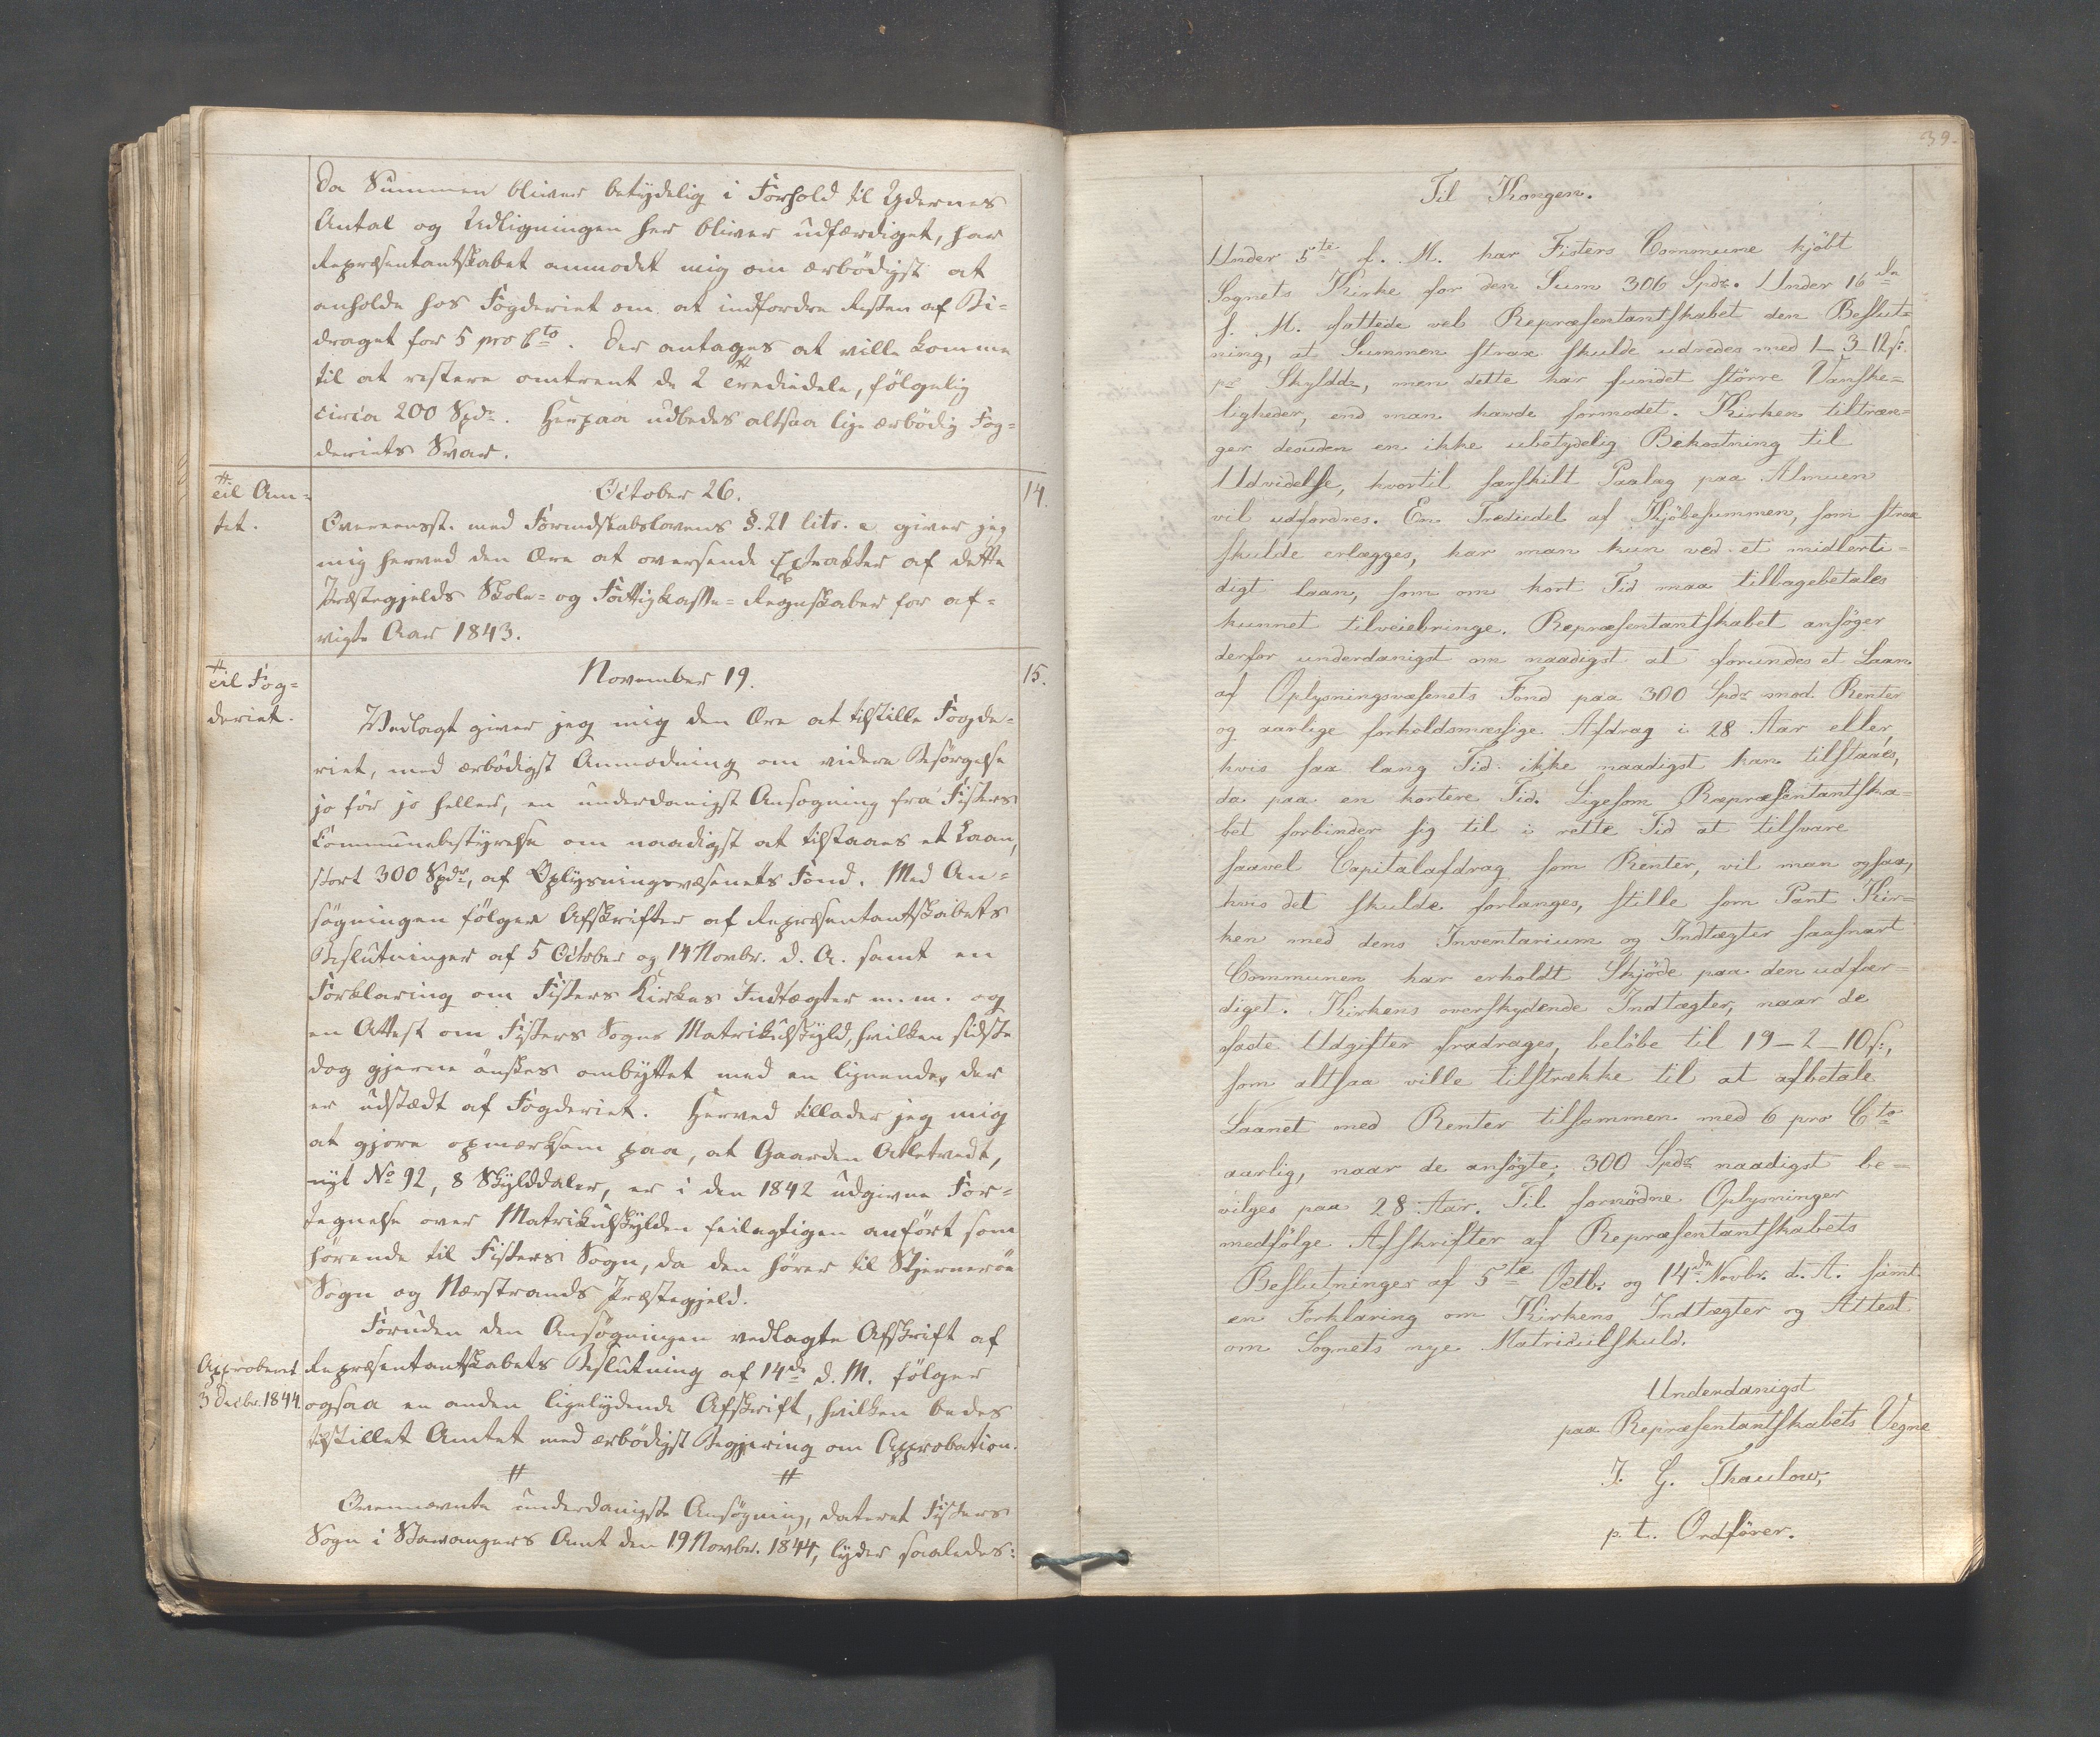 Da Summen bliver betydelig i Forhold til Ydernes
Antal og Udligningen her bliver udfærdiget, har
Repræsentantskabet anmodet mig om ærbödigst at
anholde hos Fogderiet om at indfordre Resten af Bi-
draget for 5 pro Cto. Der antages at ville komme
til at restere omtrent de 2 Trediedele, fölgelig
circa 200 Spdr. Herpaa udbedes altsaa lige ærbödig Fog-
deriets Svar.
Til Am-
tet.
October 26.
14.
Overeensst. med Formdskabslovens §. 21 litr. e giver jeg
mig herved den Ære at oversende Extrakter af dette
Præstegjelds Skole- og Fattigkasse-Regnskaber for af-
vigte Aar 1843.
Til Fog-
deriet.
November 19.
15.
Vedlagt giver jeg mig den Ære at tilstille Fogde-
riet, med ærbödigst Anmodning om videre Besörgelse
jo för jo heller, en underdanigst Ansogning fra Fisters
Communebestyrelse om naadigst at tilstaaes et Laan,
stort 300 Spdr, af Oplysningsvæsenets Fond. Med An-
sögningen fölger Afskrifter af Repræsentantskabets
Beslutninger af 5 October og 14 Novbr. d. A. samt en
Forklaring om Fisters Kirkes Indtægter m. m. og
en Attest om Fisters Sogns Matrikulskyld, hvilken sidste
dog gjerne önskes ombyttet med en lignende, der
er udstædt af Fogderiet. Herved tillader jeg mig
at gjöre opmærksom paa, at Gaarden Atletvedt,
nyt No 92, 8 Skylddaler, er i den 1842 udgivne For-
tegnelse over Matrikulskylden feilagtigen anfört som
hørende til Fisters Sogn, da den hører til Stjerneröe
Sogn og Nærstrands Præstegjeld.
Foruden den Ansögningen vedlagte Afskrift af
Approberet
3 Decbr. 1844.
Repræsentantskabets Beslutning af 14de d. M. fölger
ogsaa en anden ligelydende Afskrift, hvilken bedes
tilstillet Amtet med ærbödigst Begjæring om Approbation.
Ovennævnte underdanigste Ansögning, dateret Fisters
Sogn i Stavangers Amt den 19 Novbr. 1844, lyder saaledes:
39.
Til Kongen.
Under 5te f. M. har Fisters Commune kjöbt
Sognets Kirke for den Sum 306 Spdr. Under 16de
s. M. fattede vel Repræsentantskabet den Beslut-
ning, at Summen strax skulde udredes med 1_3_12 s.
pr Skylddr, men dette har fundet större Vanske-
ligheder, end man havde formodet. Kirken tiltræn-
ger desuden en ikke ubetydelig Bekostning til
Udvidelse, hvortil særskilt Paalæg paa Almuen
vil udfordres. En Trediedel af Kjöbesummen, som strax
skulde erlægges, har man kun ved et midlerti-
digt laan, som om kort Tid maa tilbagebetales
kunnet tilveiebringe. Repræsentantskabet ansöger
derfor underdanigst om naadigst at forundes et Laan
af Oplysningsvæsenets Fond paa 300 Spdr mod Renter
og aarlige forholdsmæssige Afdrag i 28 Aar eller,
hvis saa lang Tid ikke naadigst kan tilstaaes,
da paa en kortere Tid. Ligesom Repræsentantska-
bet forbinder sig til i rette Tid at tilsvare
saavel Capitalafdrag som Renter, vil man ogsaa,
hvis det skulde forlanges, stille som Pant Kir-
ken med dens Inventarium og Indtægter saasnart
Communen har erholdt Skjöde paa den udfær-
diget. Kirkens overskydende Indtægter, naar de
faste Udgifter fradrages, belöbe til 19_2_10 s.,
som altsaa ville tilstrække til at afbetale
Laanet med Renter tilsammen med 6 pro Cto
aarlig, naar de ansögte 300 Spdr naadigst be-
vilges paa 28 Aar. Til fornödne Oplysninger
medfölge Afskrifter af Repræsentantskabets
Beslutninger af 5te Octb. og 14de Novbr. d. A. samt
en Forklaring om Kirkens Indtægter og Attest
om Sognets nye Matriculskuld.
Underdanigst
paa Repræsentantskabets Vegne
J. G. Thaulow,
p. t. Ordförer.